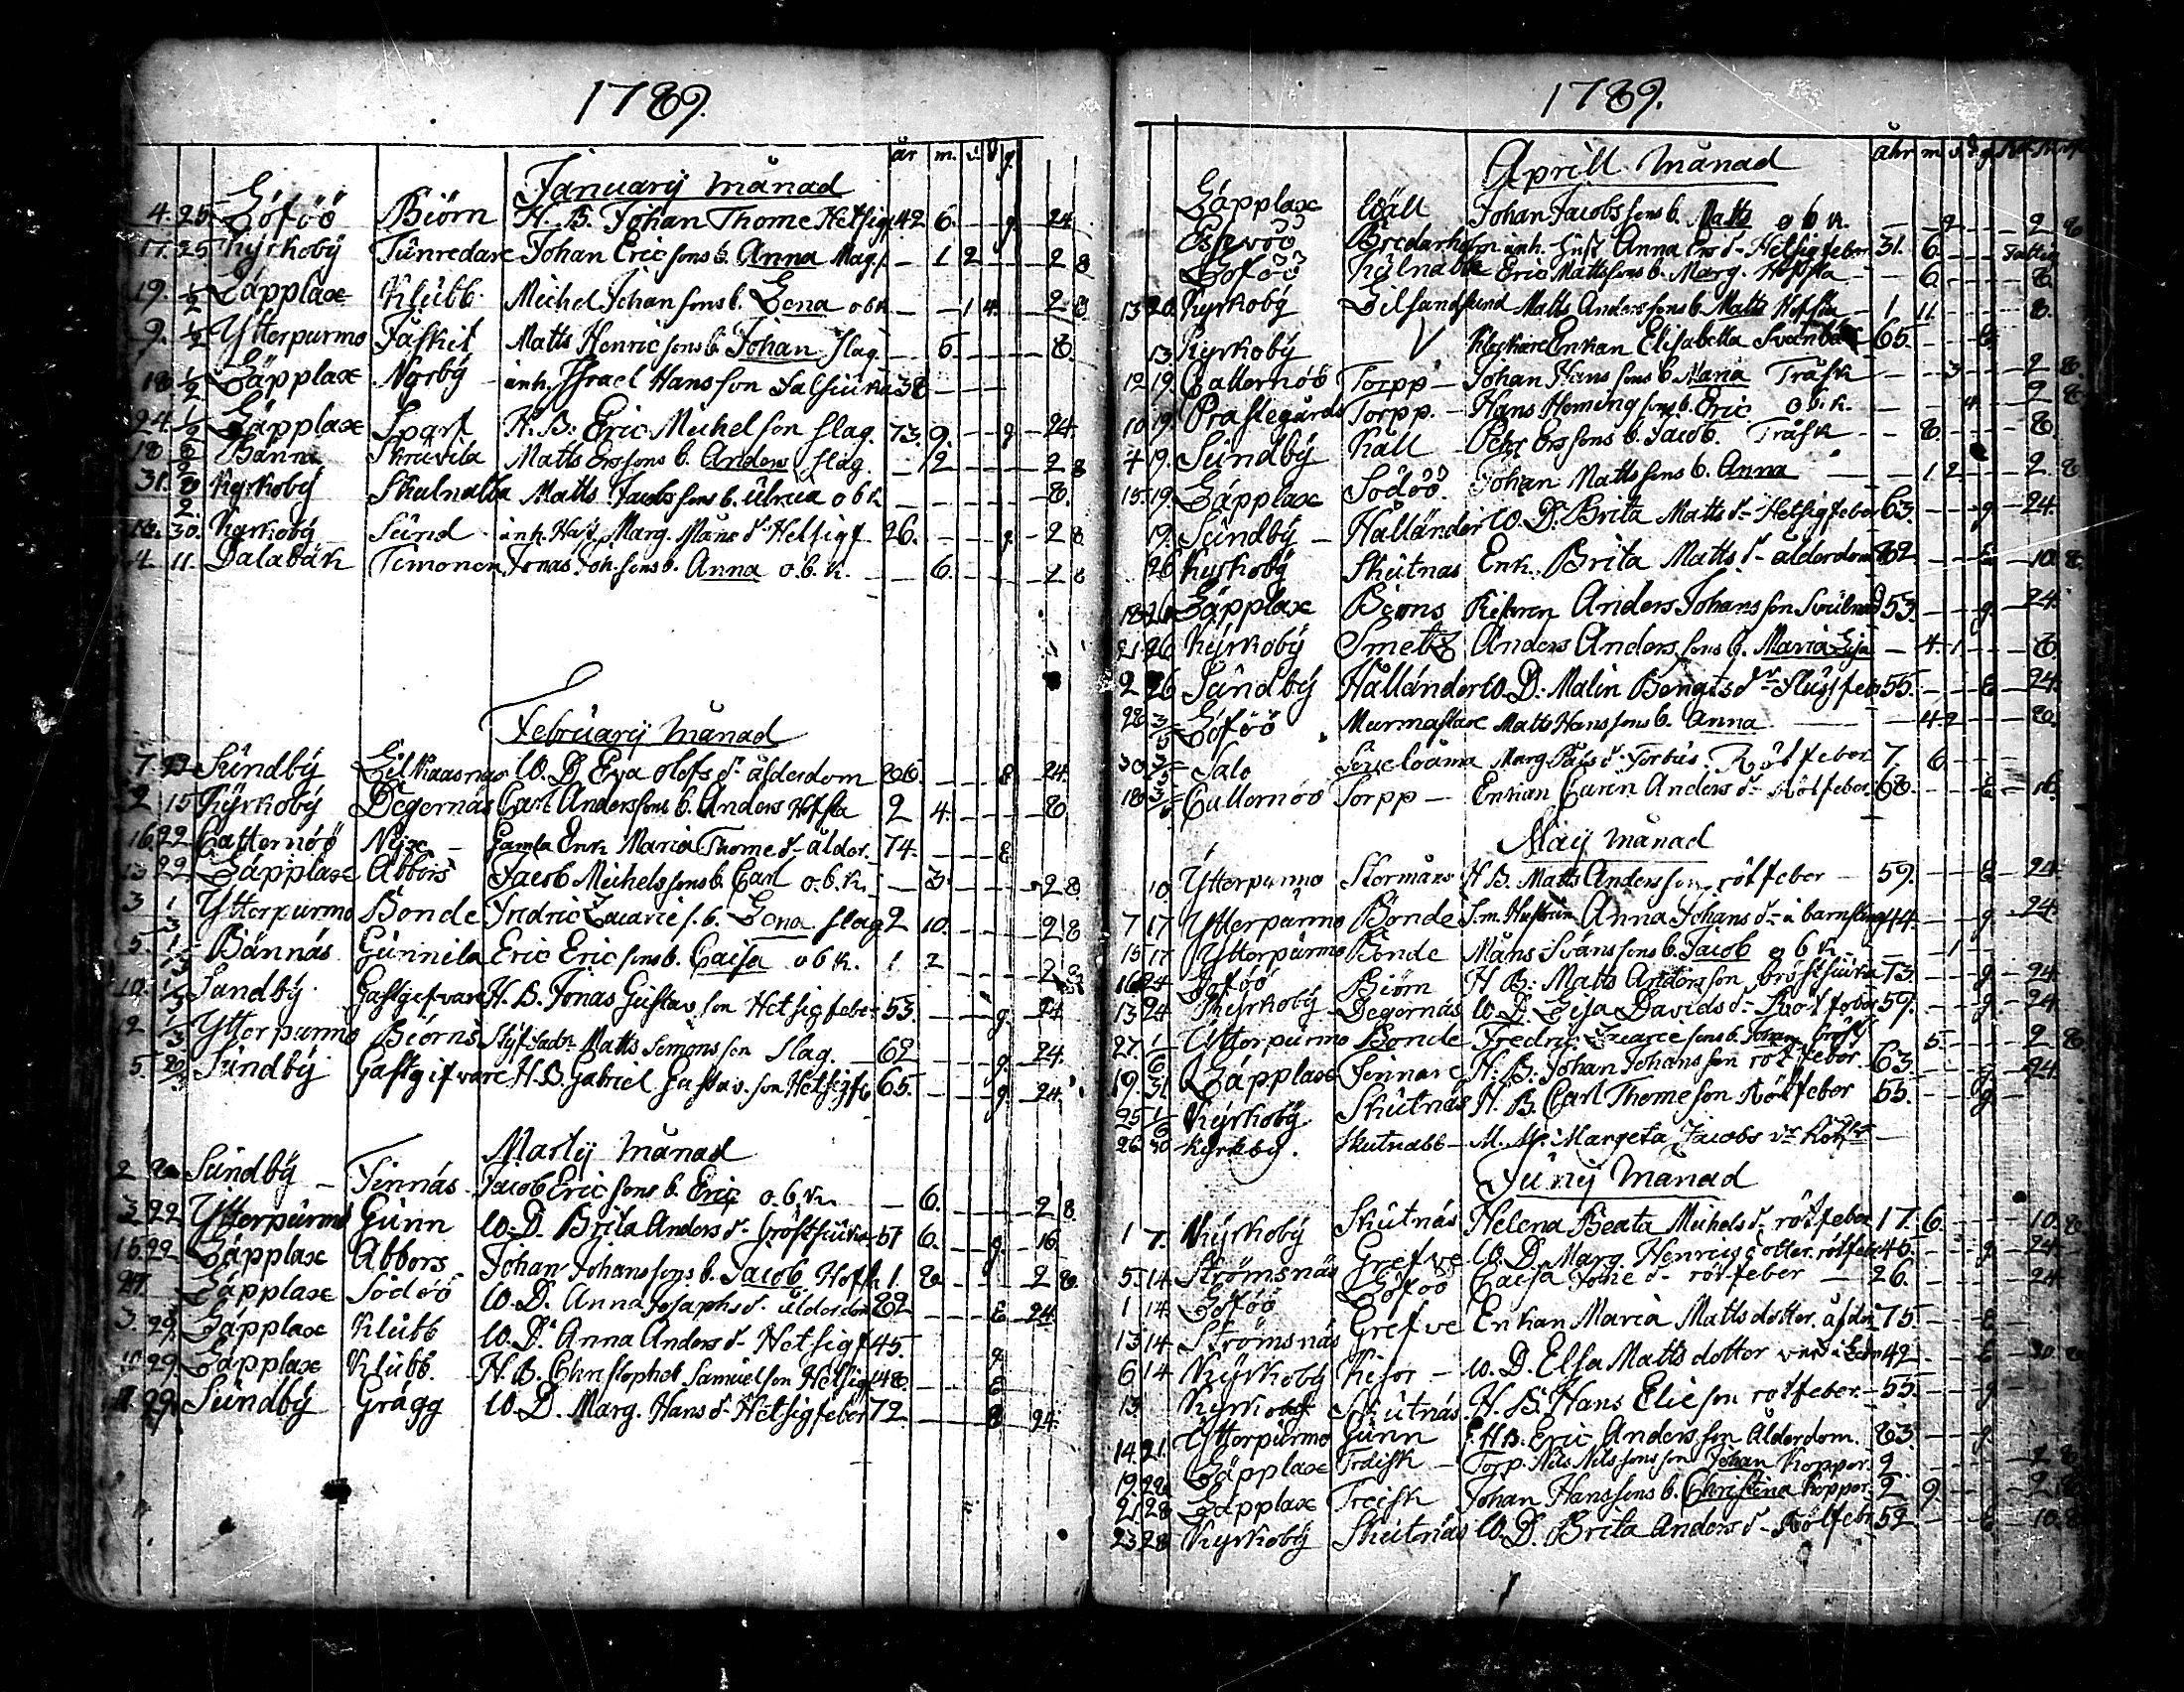 1789.
år m. v. d g.
January Månad
4. 25 Löföö Biörn H. B. Johan Thome Hetsigf 42 6. g 24
17. 25 Kyrkoby Tunredare Johan Ericsons b. Anna Mag. 1 2 2 8
19. 1/2 Läpplax Klubb Michel Johansons b. Lena obk 1 4. 2 8
9. 1/2 Ytterpurmo Matts Henricsons b. Johan slag. 6. 8
18 1/2 Läpplax Norby inh. Israel Hansson 38
24. 1/2 Läpplax H. B. Eric Michelson slag. 73. 9. g 24
18 8/2 Matts Erssons b. Anders slag. 2 2 8
31. 8/2 Kyrkoby Skutnabba Matts Jacobssons b. Ulrica obk 8
16. 30. Kyrkoby Sund inh. Hust. Marg. Måns d. Hetsigf 26. g 2 8
4. 11. Dalabäk Timonen Jonas Joh.sons b. Anna o.b.k. 6. 2 8
February Månad
7. Sundby W. D. Eva Olofs d. ålderdom 86. g 24
2 15 Kyrkoby Degernäs Carl Anderssons b. Anders Hosta 2 4. 8
16 22 Callernöö Nejx Gamla Enk. Maria Thome d. ålder. 74. E
13 22 Läpplax Abbors Jacob Michelssons b. Carl o.b.k. 3. 2 8
3 1/3 Ytterpurmo Bonde Fredric s. b. Lena slag 2 10. 2 8
5. 1/3 Bännäs Gunnila Eric Ericsons b. Caisa o b k. 1. 2 2 8
10. 1/3 Sundby Gästgifvare H. B. Jonas Gustavson Hetsigfeber 53. g. 24
2 1/3 Ytterpurmo Biörns Matts Simonsson slag. 62 g 24.
5. Sundby Gästgifvare H. B. Gabriel Gustav.son Hetsigfe 65. g. 24.
Martij Månad
2 Sundby Finnäs Jacob Ericsons b. Eric o.b.k. 6. 2 8
3 22 Ytterpurmo Gunn W. D. Brita Anders d. bröstsiuka 57 6. g 16.
15 22 Läpplax Abbors Johan Johanssons b. Jacob 1. 8. 2 8.
Läpplax Södöö W. D. Anna Josaphs d. ålderdom 82 E 24.
3. 29. Läpplax Klubb W. D. Anna Anders d. Hetsigf 45. g
29. Läpplax Klubb. H. B. Christopher Samuelson Hetsigf 48. E
29. Sundby Grägg W. D. Marg. Hans d. Hetsigfeber 72. 24.
1789.
åhr m v. d. g.
Aprill Månad
Läpplax Wäll Johan Jacobssons b. Matts o b k. 2 2 8
Esseröö Bredarholm inh. Hust Anna Ers d. Hetsigfeber 31. 6. Fattig
Löföö Kulnabba Eric Mattssons b. Marg. Hosta 6 8.
13 20 Kyrkoby Matts Anderssons b. Matts Hosta 1 11 8.
13 Kyrkoby Klockare Enkan Elisabetta 65. E
12 19. Callernöö Torpp Johan Hanssons b. Maria Träsk 3 2 8.
10 19. Prästegårds Torpp. Hans Hemingsons b. Eric o.b.k. 4 2 8
4 19. Sundby Käll Pehr Erssons b. Jacob. Träsk 8. 8.
15. 19. Läpplax Södöö. Johan Mattssons b. Anna 1. 2 2. 8
19. Sundby Halländer W. D. Brita Matts d. Hetsigfeber 63. g. 24.
26 Kyrkoby Skutnäs Enk. Brita Matts d. ålderdom 82 E 10. 8.
Läpplax Bions Anders Johansson 53. g. 24.
21 26 Kyrkoby Smetz Anders Anderssons b. Maria Lisa 4. 1 8.
2 26 Sundby Halländer W. D. Malin Bengts d. 55. E 24.
28 3/5 Löföö Murmästare Matts Hanssons b. Anna 4. 2 8.
30 3/5 Salo Marg. Påls d. Forbus. Rötfeber 7. 6
18 3/5 Callernöö Torpp Enkan Caren Anders d. Rötfeber. 68. E 16.
Maij Månad
10. Ytterpurmo Stormåns H. B. Matts Andersson rötfeber 59. E 24
7 17 Ytterpurmo Bonde S.m. Hustrun Anna Johans d. i barnsäng 44. g. 24
15 17 Ytterpurmo Bonde Måns b. Jacob o b k 1
16 24 Löföö Biörn H. B. Matts Andersson Bröstsiuka 73. g 24
13 24 Kyrkoby Degernäs W. D. Lisa Davids d. Rötfeber 59. g. 24.
27. 1/6 Ytterpurmo Bonde b. Johan Bröst 5. 2 8
19. 31 Läpplax Finnare H. B. Johan Johansson röt feber 63. g 24
25 1/6 Kyrkoby Skutnäs H. B. Carl Thomeson Rötfeber 55. g
26 30 Kyrkoby. Skutnabb Margeta Jacobs
Junij Månad
1 7. Kyrkoby Skutnäs Helena Beata Michels d. rötfeber 17. 6. 10. 8
5. 14 Strömsnäs Grefve W. D. Marg. Henrics dotter rötfeb 45. g. 24
1 14. Löföö Löföö Caisa Tome d. rötfeber 26. 24.
13 14 Strömsnäs Grefve Enkan Maria Mattsdotter 75. E
6 14 Kyrkoby Kisor W. D. Elsa Matts dotter 42. E
13. Kyrkoby Skutnäs H. B. Hans Elieson rötfeber. 55. g
14 21. Ytterpurmo Gunn F. H. B. Eric Andersson Ålderdom. 83. g
19. Läpplax Träisk Torp. Nils Nilssons son Johan Koppor. 2 2 8
21 28 Läpplax Träisk Johan Hanssons b. Christina Koppor. 2 9. 2 8
23 28 Kyrkoby Skutnäs W. D. Brita Anders d. Rötfeb. 52 E 10. 8